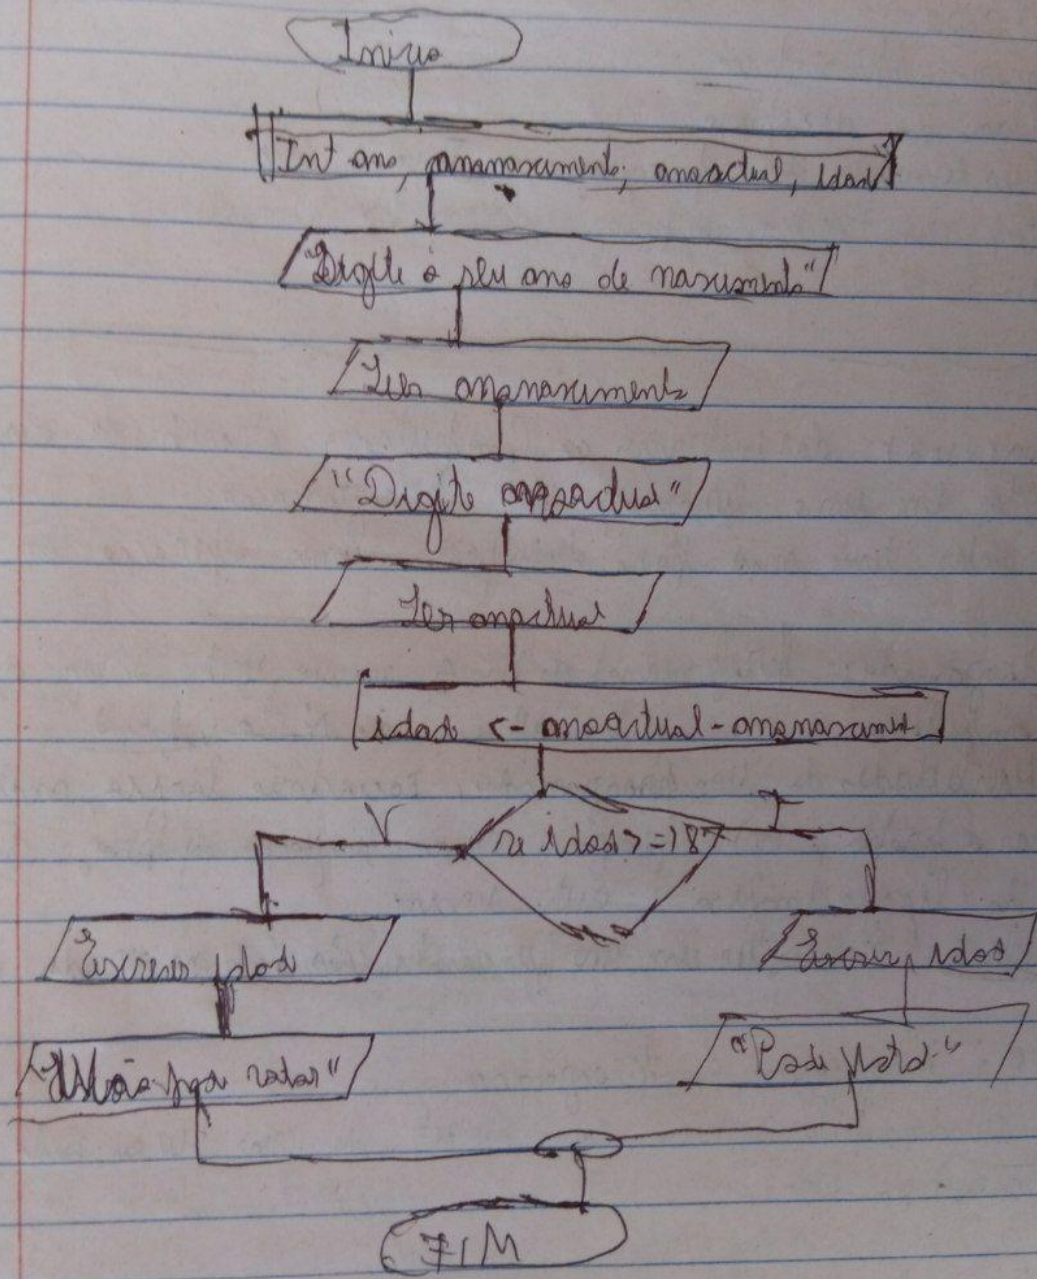 Inicio
Int ano, anonascimento, anoactual, idade
"Digite o seu ano de nascimento"
Ler anonascimento
"Digite anoactual"
Ler anoactual
idade <- anoactual - anonascimento
V
se idade >= 18?
F
Escrever idade
Escrever idade
"Não pode votar"
"Pode votar"
FIM